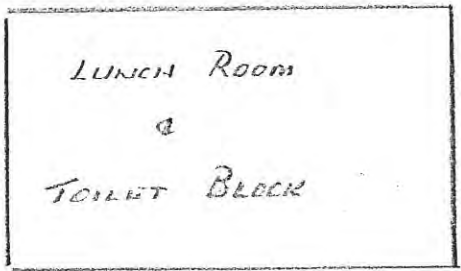 LUNCH ROOM
&
TOILET BLOCK